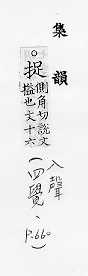 集韻
捉 側角切說文
搤也文十六
(入聲
四覺、
p.660)